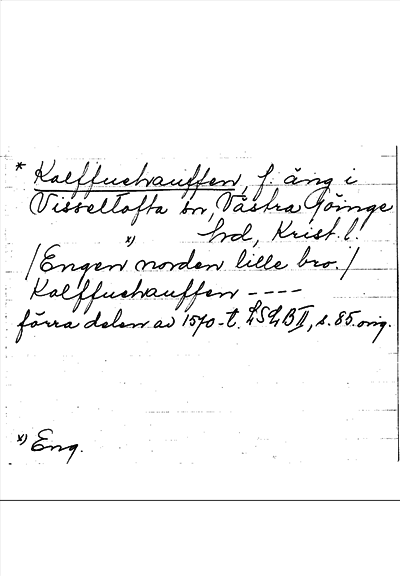 * Kalffuehauffen, f. äng i
Visseltofta sn, Västra Göinge
hd, Krist. l.
/Engen x) norden lille bro./
Kalffuehauffen ----
förra delen av 1570-t. LSLB II, s. 85. orig.
x) Eng.